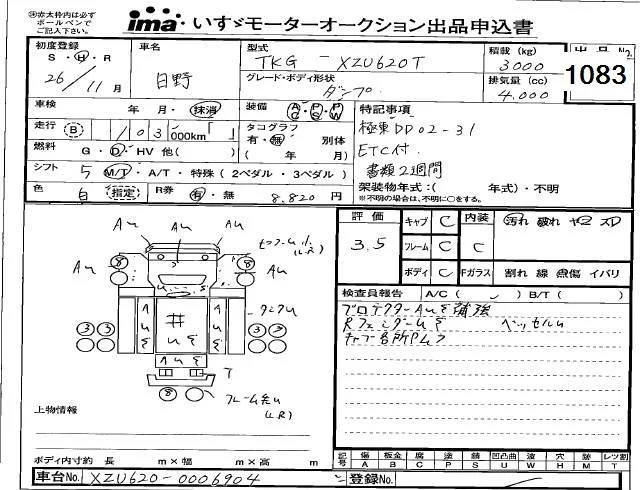 ※赤太枠内は必ず
ボールペンで
ご記入下さい。
ima いすゞモーターオークション出品申込書
初度登録 車名 型式 積載 (kg) 出品No.
S・H・R 日野 TKG - XZU620T 3000 1083
26/11月 グレード・ボディ形状 排気量 (cc)
ダンプ 4.000
車検 年 月・抹消 装備 AC・PS・PW 特記事項
走行 B 103 000km「 」 タコグラフ 極東DD02-31
有・無 別体 ETC付
燃料 G・D・HV 他( ) ( 年 月) 書類2週間
シフト 5 M/T・A/T・特殊(2ペダル・3ペダル) 架装物年式:( 年式)・不明
※不明の場合は、不明に○をする。
色 白 指定 R券 有・無 8.820 円
評価 キャブ C 内装 汚れ 破れ ヤコ スD
3.5 フレーム C C
ボディ C Fガラス 割れ 線 点傷 イバリ
AU AU AU
AU AU
8 8
検査員報告 A/C( ) B/T( )
プロテクターAUE補強
RフェンダーUE
3 3 3 3
T
8
上物情報
ボディ内寸約 長 m×幅 m×高 m
記号 傷 板金 腐 塗 錆 凹凸曲 波 穴 跡 レツ割
A B C P S U W H M T
車台No. XZU620-0006904 登録No.